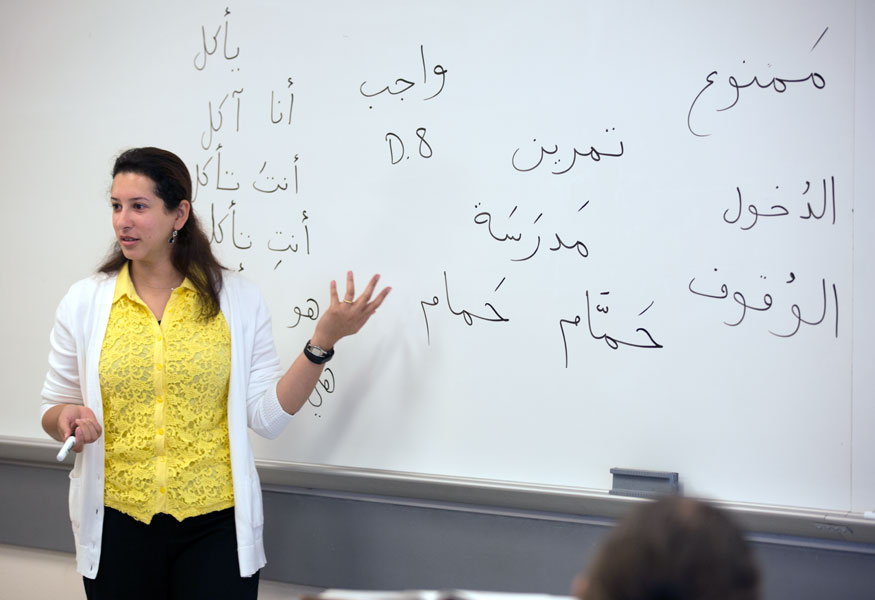 مَمنوع
الدُخول
الوُقوف
واجب
D.8
تمرين
مَدرَسَة
حَمام
حَمَّام
يأكل
أنا آكل
أنتَ تأكل
أنتِ تأكل
هو
هي